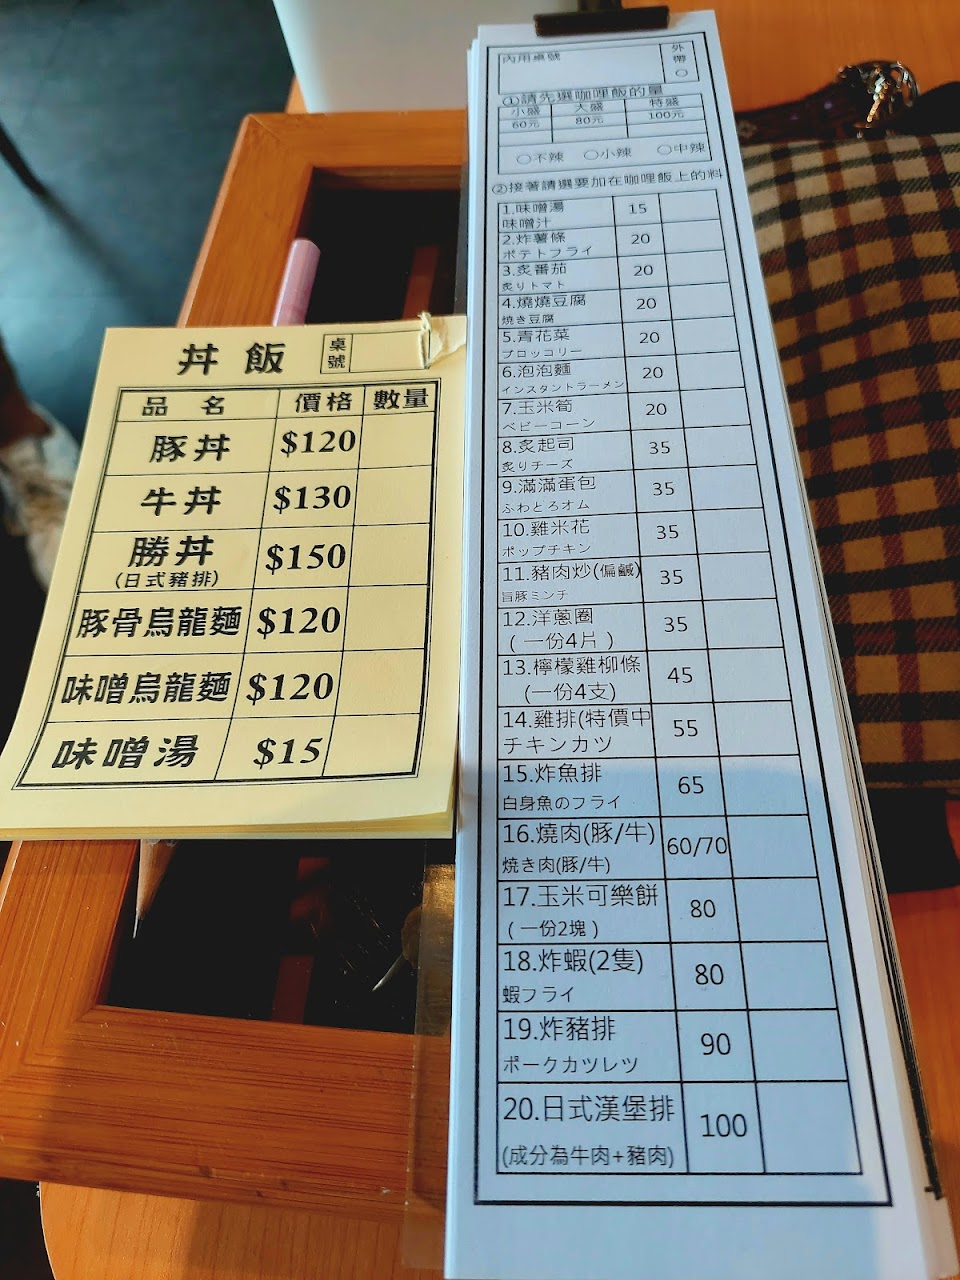 丼飯 桌號
品名 價格 數量
豚丼 $120
牛丼 $130
勝丼 $150
(日式豬排)
豚骨烏龍麵 $120
味噌烏龍麵 $120
味噌湯 $15
內用桌號 外帶○
①請先選咖哩飯的量
小盛 大盛 特盛
60元 80元 100元
○不辣 ○小辣 ○中辣
②接著請選要加在咖哩飯上的料
1.味噌湯 15
味噌汁
2.炸薯條 20
ポテトフライ
3.炙番茄 20
炙りトマト
4.燒燒豆腐 20
焼き豆腐
5.青花菜 20
ブロッコリー
6.泡泡麵 20
インスタントラーメン
7.玉米筍 20
ベビーコーン
8.炙起司 35
炙りチーズ
9.滿滿蛋包 35
ふわとろオム
10.雞米花 35
ポップチキン
11.豬肉炒(偏鹹) 35
旨豚ミンチ
12.洋蔥圈 35
(一份4片)
13.檸檬雞柳條 45
(一份4支)
14.雞排(特價中 55
チキンカツ
15.炸魚排 65
白身魚のフライ
16.燒肉(豚/牛) 60/70
焼き肉(豚/牛)
17.玉米可樂餅 80
(一份2塊)
18.炸蝦(2隻) 80
蝦フライ
19.炸豬排 90
ポークカツレツ
20.日式漢堡排 100
(成分為牛肉+豬肉)